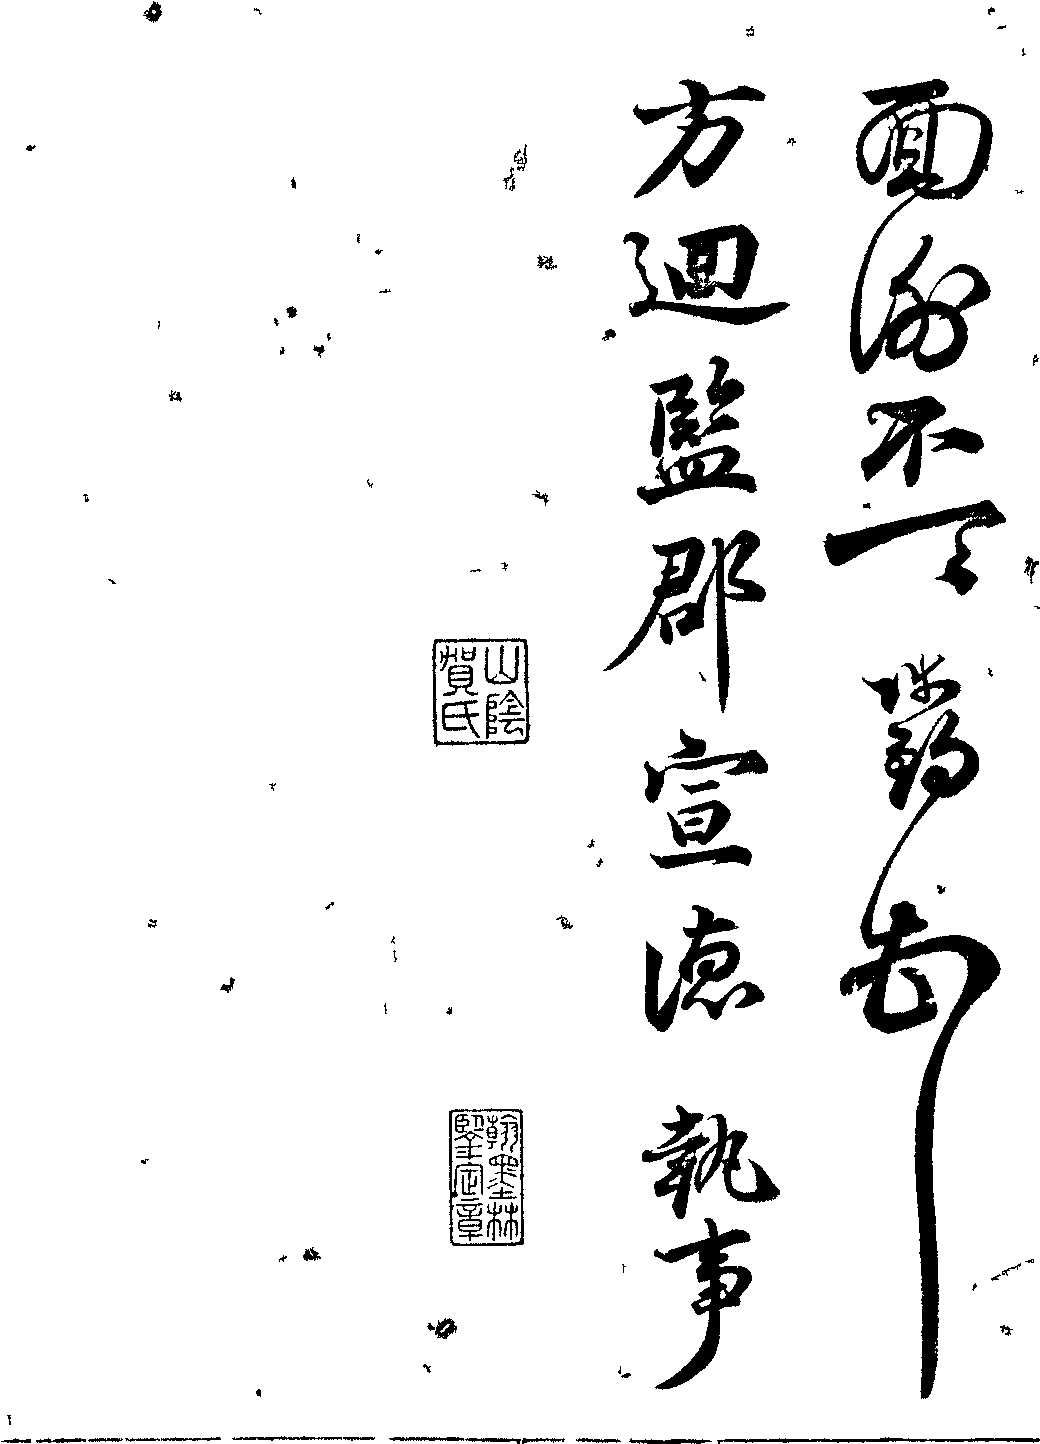 面謝不一
方迴監郡宣德 執事
山陰
賀氏
翰墨林
鑒定章